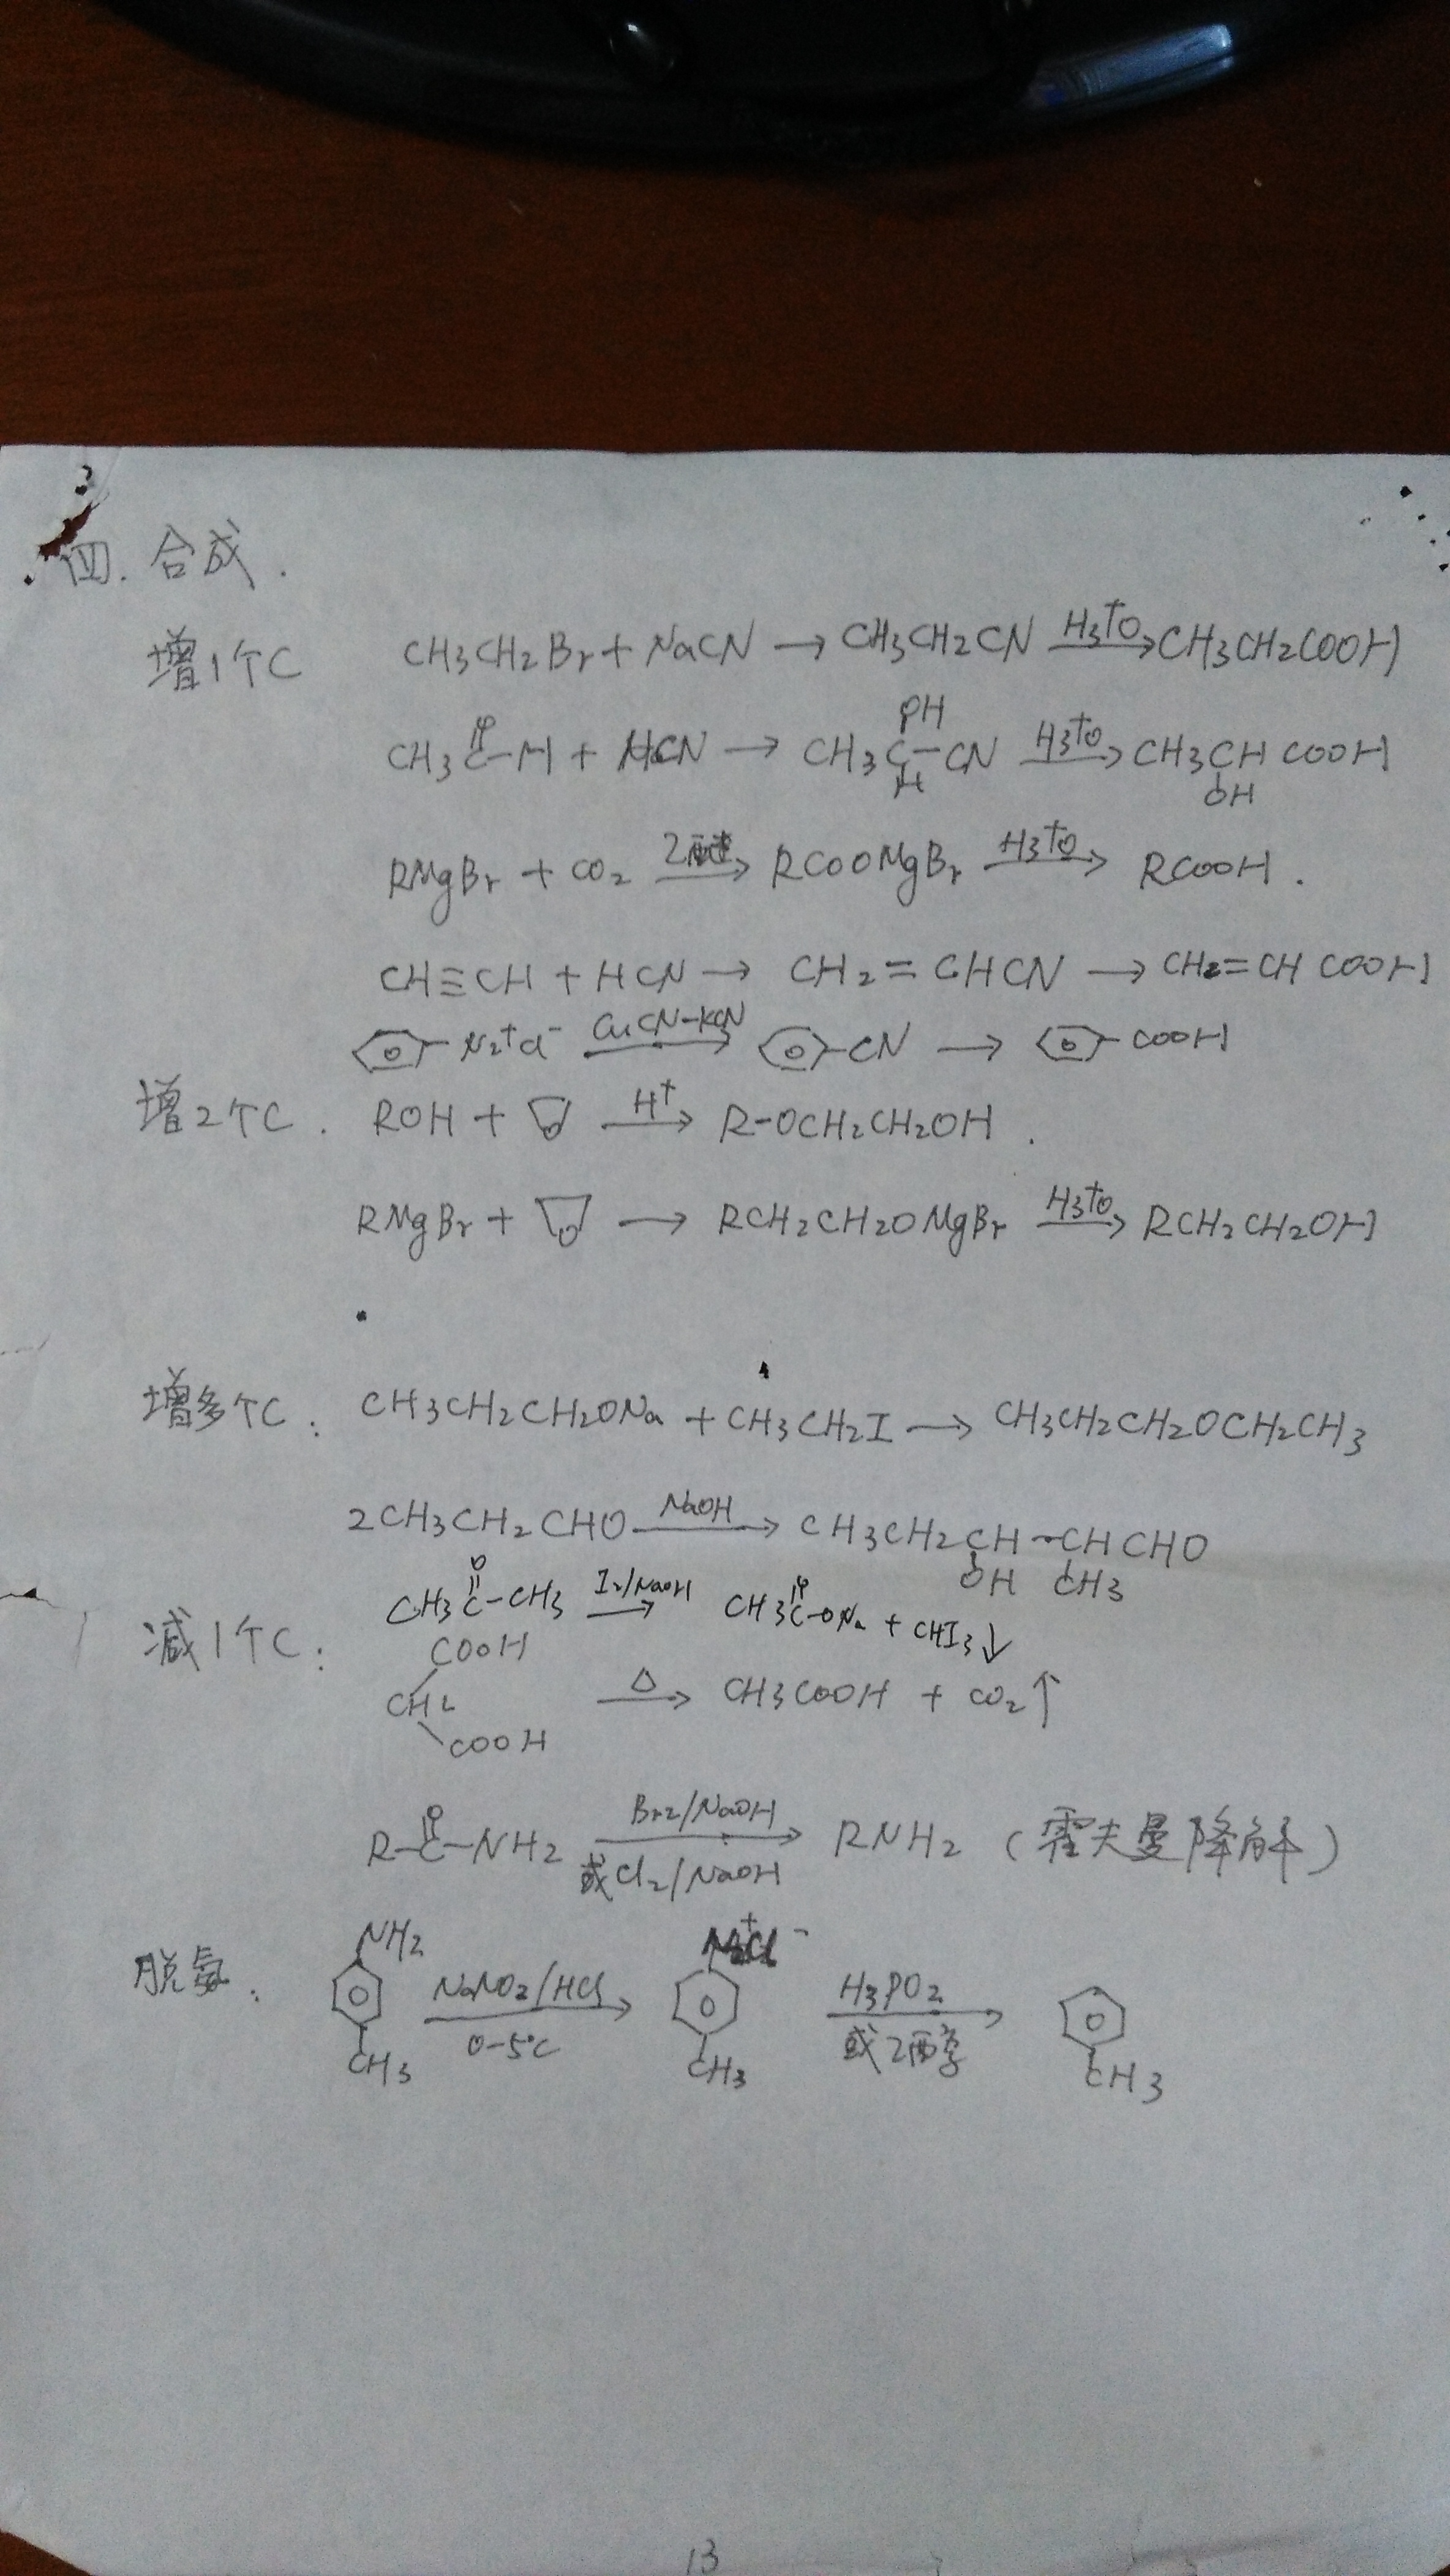 四. 合成.
增1个C CH3CH2Br + NaCN → CH3CH2CN H3+O→ CH3CH2COOH
CH3C(=O)-H + HCN → CH3C(OH)(H)-CN H3+O→ CH3CH(OH)COOH
RMgBr + CO2 乙醚→ RCOOMgBr H3+O→ RCOOH.
CH≡CH + HCN → CH2=CHCN → CH2=CHCOOH
⌬-N2+Cl- CuCN-KCN→ ⌬-CN → ⌬-COOH
增2个C. ROH + ▽O H+→ R-OCH2CH2OH.
RMgBr + ▽O → RCH2CH2OMgBr H3+O→ RCH2CH2OH
增多个C: CH3CH2CH2ONa + CH3CH2I → CH3CH2CH2OCH2CH3
2CH3CH2CHO NaOH→ CH3CH2CH(OH)-CH(CH3)CHO
CH3C(=O)-CH3 I2/NaOH→ CH3C(=O)-ONa + CHI3↓
减1个C: CH2(COOH)(COOH) △→ CH3COOH + CO2↑
R-C(=O)-NH2 Br2/NaOH 或Cl2/NaOH→ RNH2 (霍夫曼降解)
脱氨: NH2-⌬-CH3 NaNO2/HCl 0-5℃→ N2+Cl- -⌬-CH3 H3PO2 或乙醇→ ⌬-CH3
13